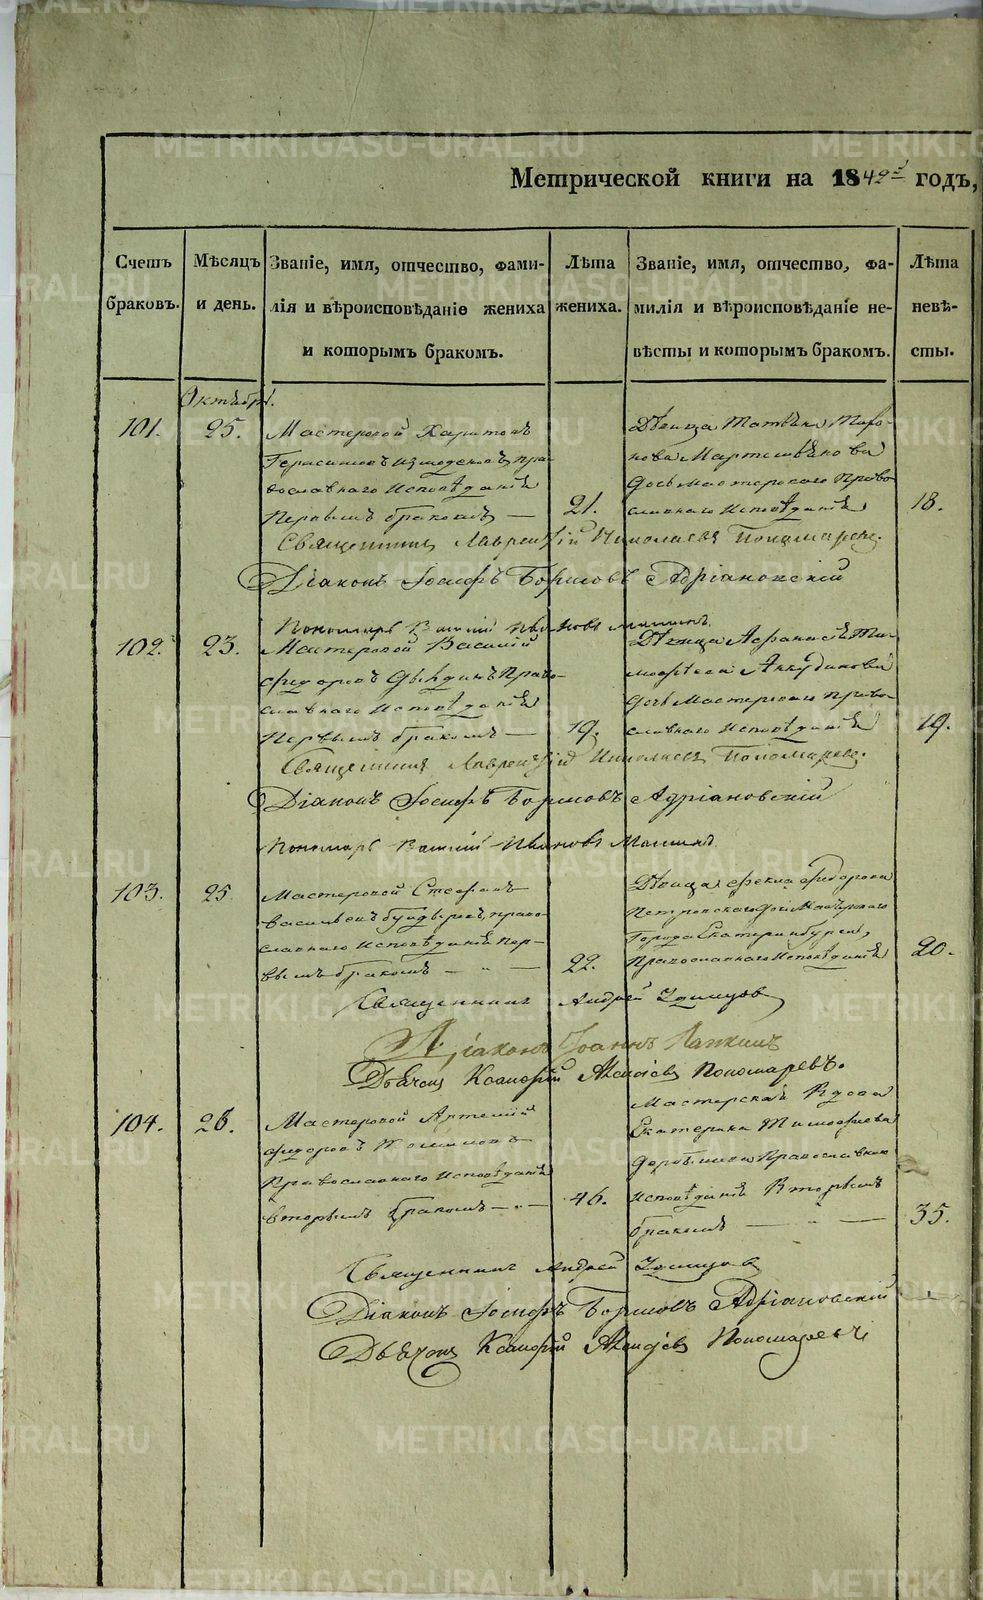 Метрической книги на 1842й годъ,
Счетъ браковъ.
Мѣсяцъ и день.
Званіе, имя, отчество, фами-
лія и вѣроисповѣданіе жениха
и которымъ бракомъ.
Лѣта жениха.
Званіе, имя, отчество, фа-
милія и вѣроисповѣданіе не-
вѣсты и которымъ бракомъ.
Лѣта невѣ-
сты.
Октябрь.
101.
25.
Мастеровой Харитонъ
Герасимовъ пра-
вославнаго Исповѣданія
Первымъ бракомъ —
21.
Дѣвица Татьяна
дочь мастероваго Право-
славнаго Исповѣданія
18.
Священникъ Лаврентій Николаевъ Пономаревъ.
Діаконъ Іосифъ Борисовъ Адріановскій
Пономарь Василій Ивановъ
102.
23.
Мастеровой Василій
Федоровъ Право-
славнаго Исповѣданія
Первымъ бракомъ —
19.
Дѣвица Афанасья Ти-
мофѣева Аккудинова
дочь Мастероваго Право-
славнаго Исповѣданія
19.
Священникъ Лаврентій Николаевъ Пономаревъ.
Діаконъ Іосифъ Борисовъ Адріановскій
Пономарь Василій Ивановъ
103.
25
Мастеровой Стефанъ
Васильевъ право-
славнаго исповѣданія пер-
вымъ бракомъ — " —
22.
Дѣвица Фекла Федорова
Города Екатеринбурга,
Православнаго Исповѣданія
20.
Священникъ Андрей
Діаконъ Іоаннъ
Дьячокъ Алексіевъ Пономаревъ.
104.
26.
Мастеровой Артемій
Федоровъ
Православнаго Исповѣданія
вторымъ бракомъ — " —
46.
Мастерская Вдова
Екатерина Тимофіева
Православнаго
Исповѣданія Вторымъ
бракомъ — " —
35.
Священникъ Андрей
Діаконъ Іосифъ Борисовъ Адріановскій
Дьячокъ Алексіевъ Пономаревъ
METRIKI.GASO-URAL.RU